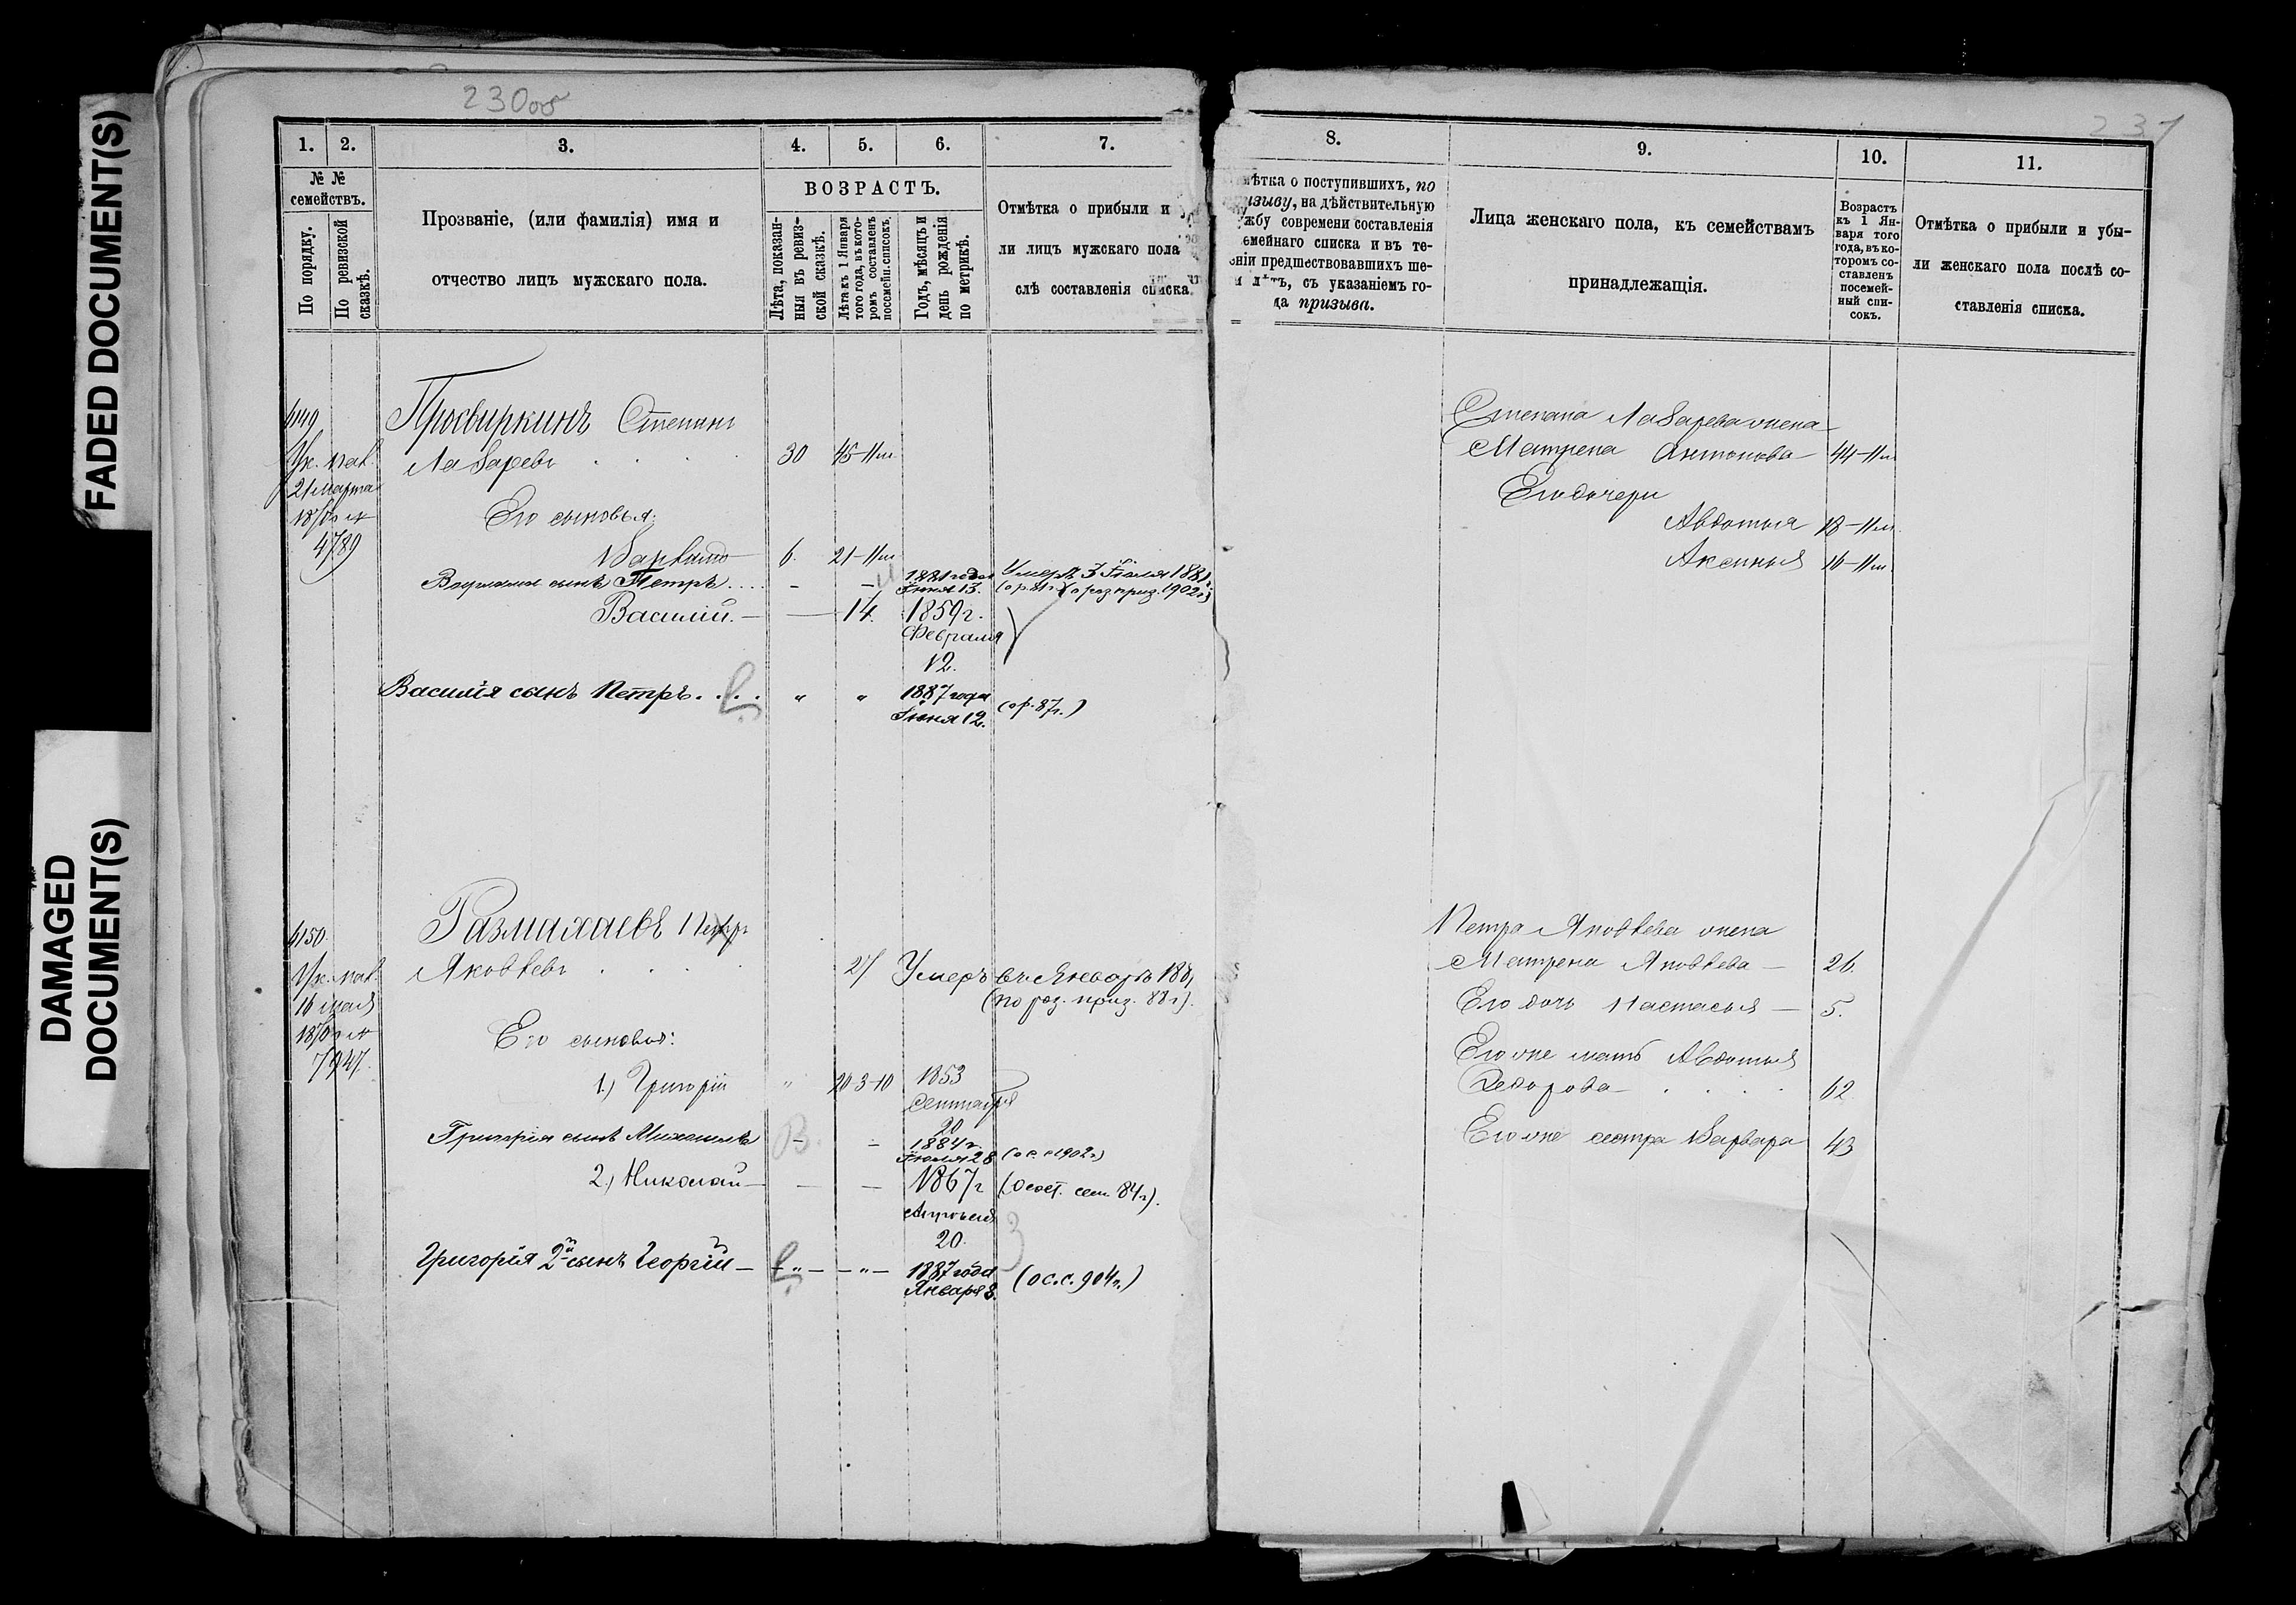 FADED DOCUMENT(S)
DAMAGED
DOCUMENT(S)
230об
1. 2. 3. 4. 5. 6. 7.
№ №
семействъ.
По порядку.
По ревизской
сказкѣ.
Прозваніе, (или фамилія) имя и
отчество лицъ мужскаго пола.
ВОЗРАСТЪ.
Лѣта, показан-
ныя въ ревиз-
ской сказкѣ.
Лѣта къ 1 Января
того года, въ кото-
ромъ составленъ
посемейн. списокъ.
Годъ, мѣсяцъ и
день рожденія
по метрикѣ.
Отмѣтка о прибыли и
ли лицъ мужскаго пола
слѣ составленія списка.
4149
Просвиркинъ Степанъ
Ук. пал. Лазаревъ 30 45-11м
21 марта
1870 г №
4789
Его сыновья:
6. 21-11м
сынъ Петръ - - 1881 года
Іюня 13.
Умеръ 3 Іюля 1881
Василій. — 14. 1859 г.
Февраля
12.
Василія сынъ Петръ. . . . " " 1887 года
Іюня 12.
(ор. 87г.)
4150.
Размахаевъ Петръ
Ук. пал. Яковлевъ 27 Умеръ въ Январѣ 188
16 мая (по роз. приз. 88 г).
1870 г №
7947.
Его сыновья:
1.) Григорій " 20-3-10 1853
Сентября
20
Григорія сынъ Михаилъ - - 1884 г.
Іюля 28 (о с. с 1902 г)
2.) Николай — — — 1867 г (О сост. сем. 84 г).
Апрѣля
20.
Григорія 2й сынъ Георгій — — " — — " — 1887 года
Января 8.
(о с. с. 904 г.)
231
8. 9. 10. 11.
мѣтка о поступившихъ, по
изыву, на дѣйствительную
жбу современи составленія
емейнаго списка и въ те-
ніи предшествовавшихъ ше-
и лѣтъ, съ указаніемъ го-
да призыва.
Лица женскаго пола, къ семействамъ
принадлежащія.
Возрастъ
къ 1 Ян-
варя того
года, въ ко-
торомъ со-
ставленъ
посемей-
ный спи-
сокъ.
Отмѣтка о прибыли и убы-
ли женскаго пола послѣ со-
ставленія списка.
Степана Лазарева жена
Матрена Антонова — 44-11м
Его дочери
Авдотья 18-11м.
Аксинья 16-11м
Петра Яковлева жена
Матрена Яковлева — 26.
Его дочь Настасья — 5.
Его же мать Авдотья
Федорова — 62
Его же сестра Варвара 43